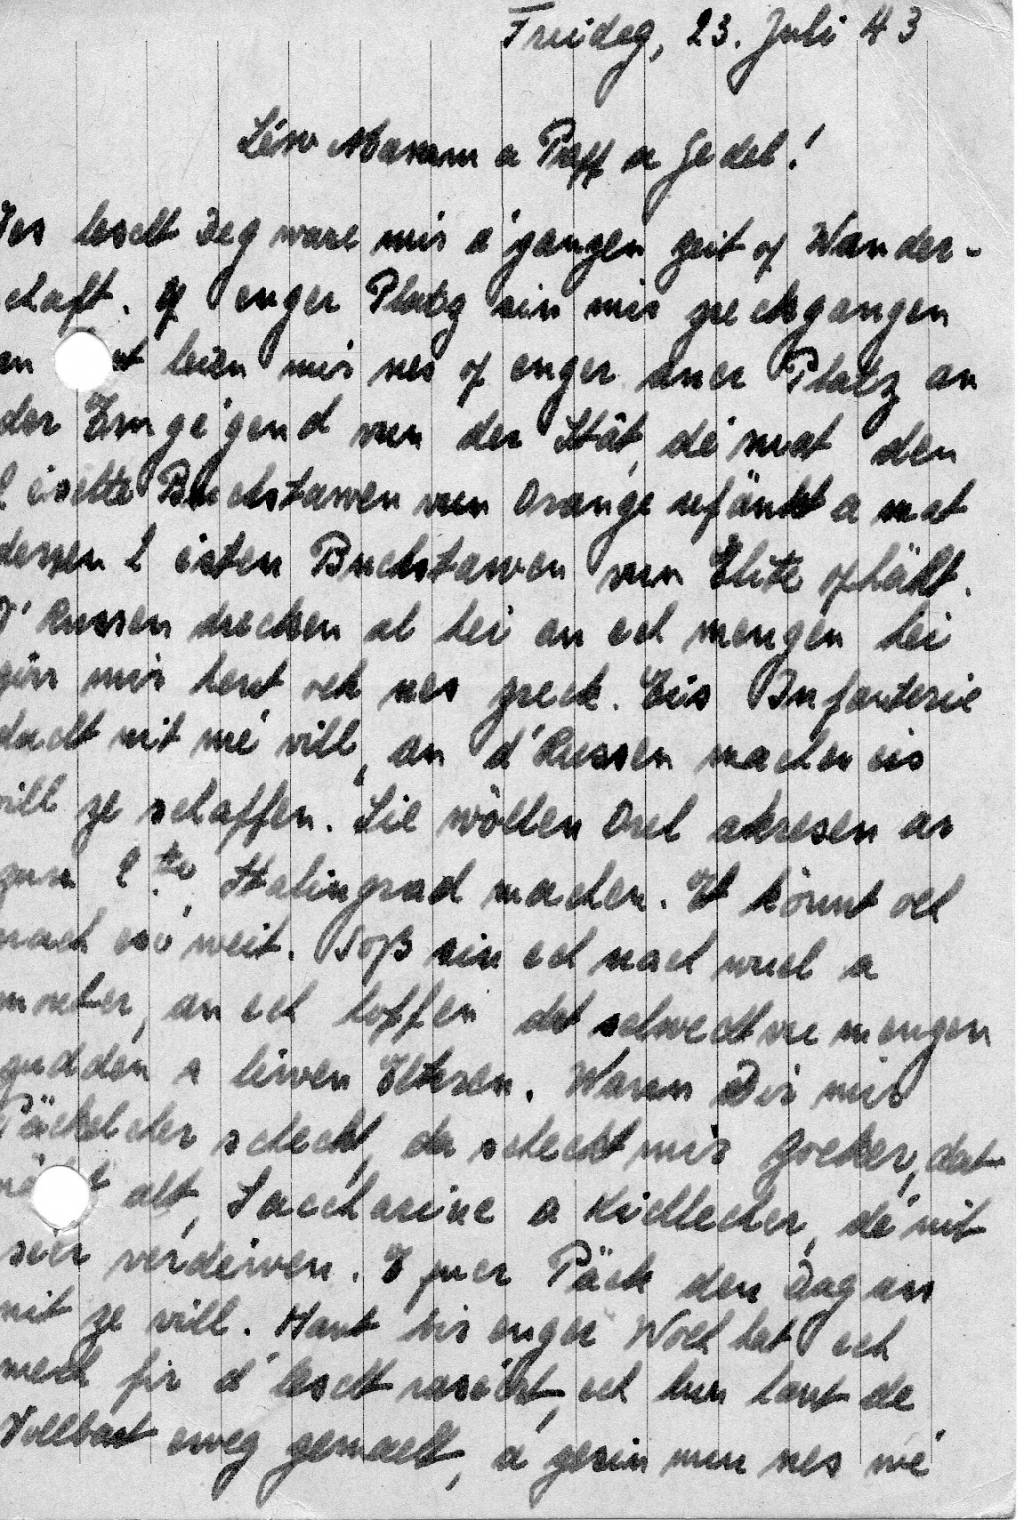 Freideg, 23. Juli 43
Léiw Mamm a Papp a Jedet!
Des lescht Deg ware mir d'ganzen Zeit of Wander-
schaft. Of enger Platz sin mir zreckgangen
an leien mir nes of enger aner Platz an
der Emgégend vun der Stât, dé mat den
2 éischte Buchstawen vun Orange ufänkt a mat
denen 2 éisten Buchstawen vun Elite ophällt.
D'Russen drecken al hei an ech mengen hei
gin mir haut och nes zreck. Eis Infanterie
dacht nit mé vill, an d'Russen machen eis
vill ze schaffen. Sie wöllen Orel akresen an
zum 2te Stalingrad machen. Et könnt och
nach eso weit. Soß sin ech nach wuel a
monter, an ech hoffen dat selwecht vu mengen
gudden a léiwen Elteren. Wann Dir mir
Päckelcher scheckt, da scheckt mir Zocker, dat
alt, Saccharine a Kichelcher, dé nit
séier verdéirwen. E puer Päck den Dag an
nit ze vill. Haut vir enger Woch hat ech
mech fir d'lescht raséiert, ech hun haut de
Vollbart eweg gemacht, a gesin nun nes wé